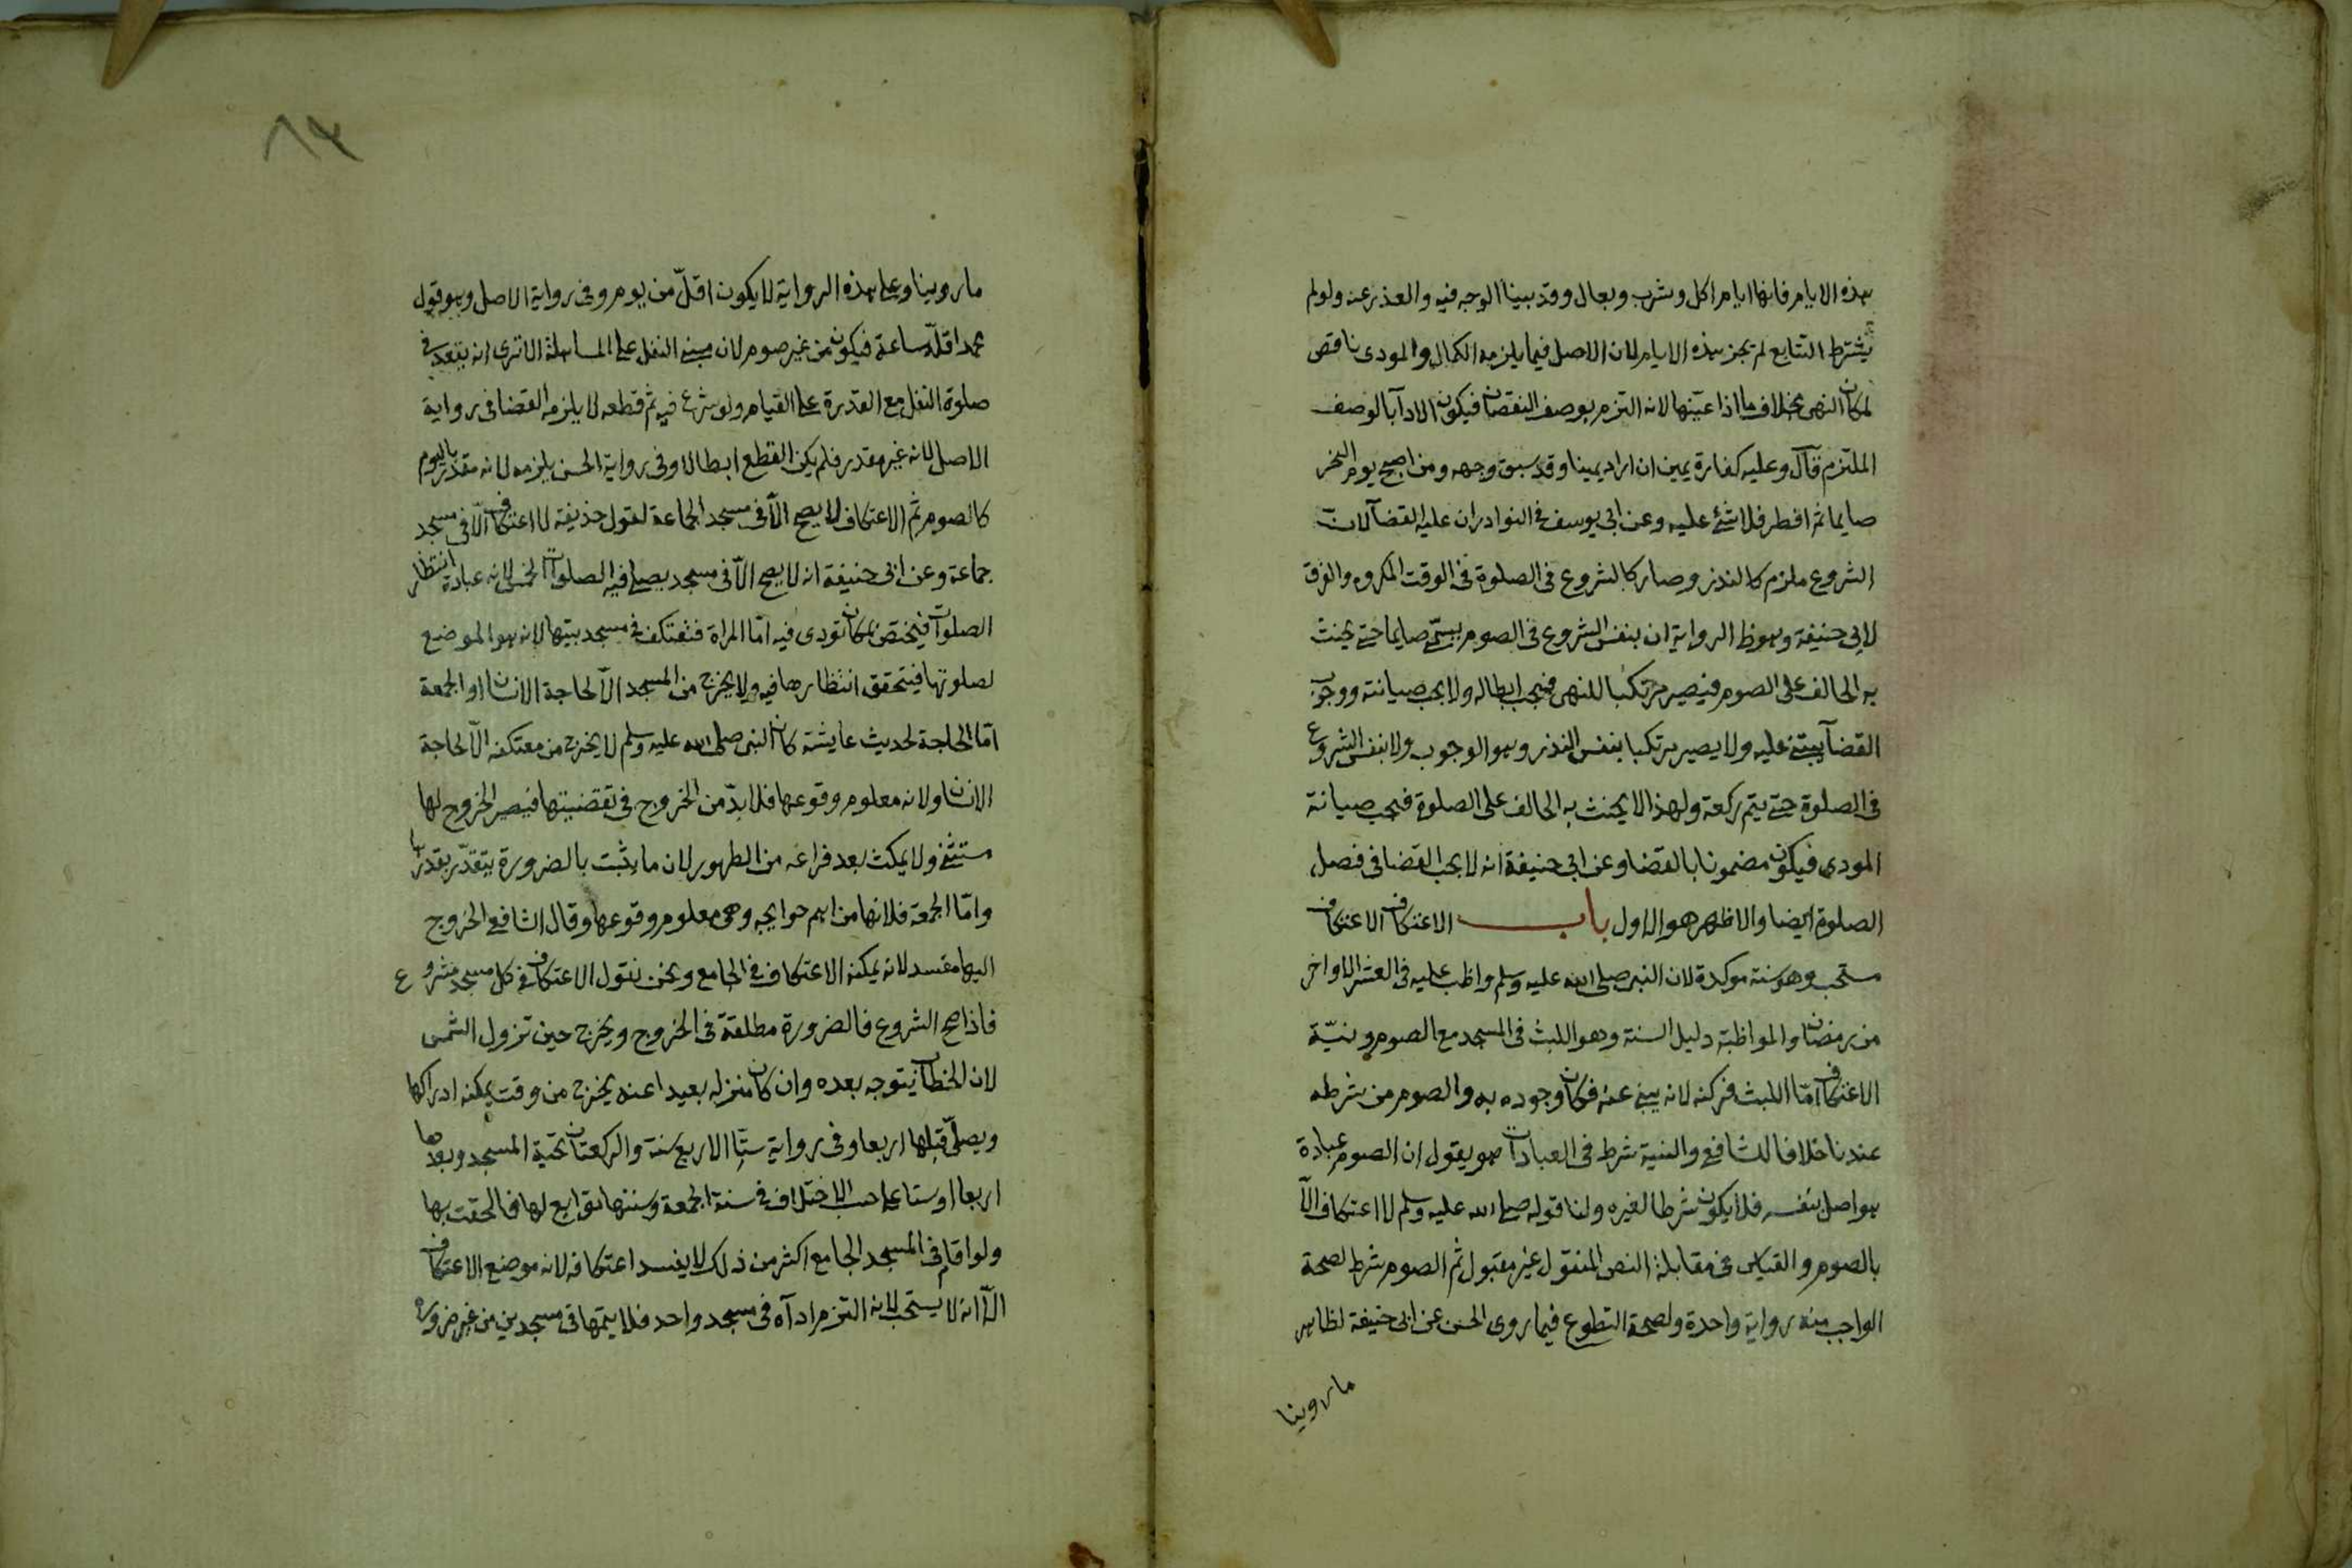 هذه الايام فانها ايام اكل وشرب وبعال وقد بينا الوجه فيه والعذر عنه ولو لم
يشترط التتابع لم يجز هذه الايام لان الاصل فيما يلزمه الكمال والمودى ناقص
لمكان النهى بخلاف ما اذا عينها لانه التزم بوصف النقصان فيكون الادآ بالوصف
الملتزم قال وعليه كفارة يمين ان اراد يمينا وقد سبق وجهه ومن اصبح يوم النحر
صايما ثم افطر فلا شئ عليه وعن ابى يوسف فى النوادر ان عليه القضآ لان
الشروع ملزم كالنذر وصار كالشروع فى الصلوة فى الوقت المكروه والفرق
لابى حنيفة وهو ظ الرواية ان بنفس الشروع فى الصوم يسمى صايما حتى يحنث
به الحالف على الصوم فيصير مرتكبا للنهى فيجب ابطاله ولا يجب صيانته ووجوب
القضآ يبتنى عليه ولا يصير مرتكبا بنفس النذر وهو الوجوب ولا بنفس الشروع
فى الصلوة حتى يتم ركعة ولهذا لا يحنث به الحالف على الصلوة فيجب صيانة
المودى فيكون مضمونا بالقضا وعن ابى حنيفة انه لا يجب القضا فى فصل
الصلوة ايضا والاظهر هو الاول باب الاعتكاف الاعتكاف
مستحب وهو سنة موكدة لان النبى صلى الله عليه وسلم واظب عليه فى العشر الاواخر
من رمضان والمواظبة دليل السنة وهو اللبث فى المسجد مع الصوم ونيّة
الاعتكاف امّا اللبث فركنه لانه يبنى عنه فكان وجوده به والصوم من شرطه
عندنا خلافا للشافعى والنية شرط فى العبادات هو يقول ان الصوم عبادة
هو اصل بنفسه فلا يكون شرطا لغيره ولنا قوله صلى الله عليه وسلم لا اعتكاف الّا
بالصوم والقياس فى مقابلة النص المنقول غير مقبول ثم الصوم شرط لصحة
الواجب منه رواية واحدة ولصحة التطوع فيما روى الحسن عن ابى حنيفة لظاهر
ما روينا
٨٣
ما روينا وعلى هذه الرواية لا يكون اقلّ من يوم وفى رواية الاصل وهو قول
محمد اقلّه ساعة فيكون من غير صوم لان مبنى النفل على المساهلة الا ترى انه يقعد فى
صلوة النفل مع القدرة على القيام ولو شرع فيه ثم قطعه لا يلزمه القضا فى رواية
الاصل لانه غير مقدر فلم يكن القطع ابطالا وفى رواية الحسن يلزمه لانه مقدر باليوم
كالصوم ثم الاعتكاف لا يصح الّا فى مسجد الجماعة لقول حذيفة لا اعتكاف الّا فى مسجد
جماعة وعن ابى حنيفة انه لا يصح الّا فى مسجد يصلى فيه الصلوات الخمس لانه عبادة انتظار
الصلوات فيختص بمكان تودى فيه امّا المراة فتعتكف فى مسجد بيتها لانه هو الموضع
لصلوتها فيتحقق انتظارها فيه ولا يخرج من المسجد الّا لحاجة الانسان او الجمعة
امّا الحاجة لحديث عايشة كان النبى صلى الله عليه وسلم لا يخرج من معتكفه الّا لحاجة
الانسان ولانه معلوم وقوعها فلا بدّ من الخروج فى تقضيتها فيصير الخروج لها
مستثنى ولا يمكث بعد فراغه من الطهور لان ما يثبت بالضرورة يتقدّر بقدرها
وامّا الجمعة فلانها من اهم حوايجه وهى معلوم وقوعها وقال الشافعى الخروج
اليها مفسد لانه يمكنه الاعتكاف فى الجامع ونحن نقول الاعتكاف فى كل مسجد مشروع
فاذا صح الشروع فالضرورة مطلقة فى الخروج ويخرج حين تزول الشمس
لان الخطاب يتوجه بعده وان كان منزله بعيدا عنه يخرج من وقت يمكنه ادراكها
ويصلّى قبلها اربعا وفى رواية ستّا الاربع سنة والركعتان تحية المسجد وبعدها
اربعا او ستا على حسب الاختلاف فى سنة الجمعة وسننها توابع لها فالحقت بها
ولو اقام فى المسجد الجامع اكثر من ذلك لا يفسد اعتكافه لانه موضع الاعتكاف
الّا انه لا يستحب لانه التزم ادآه فى مسجد واحد فلا يتمها فى مسجدين من غير ضرورة